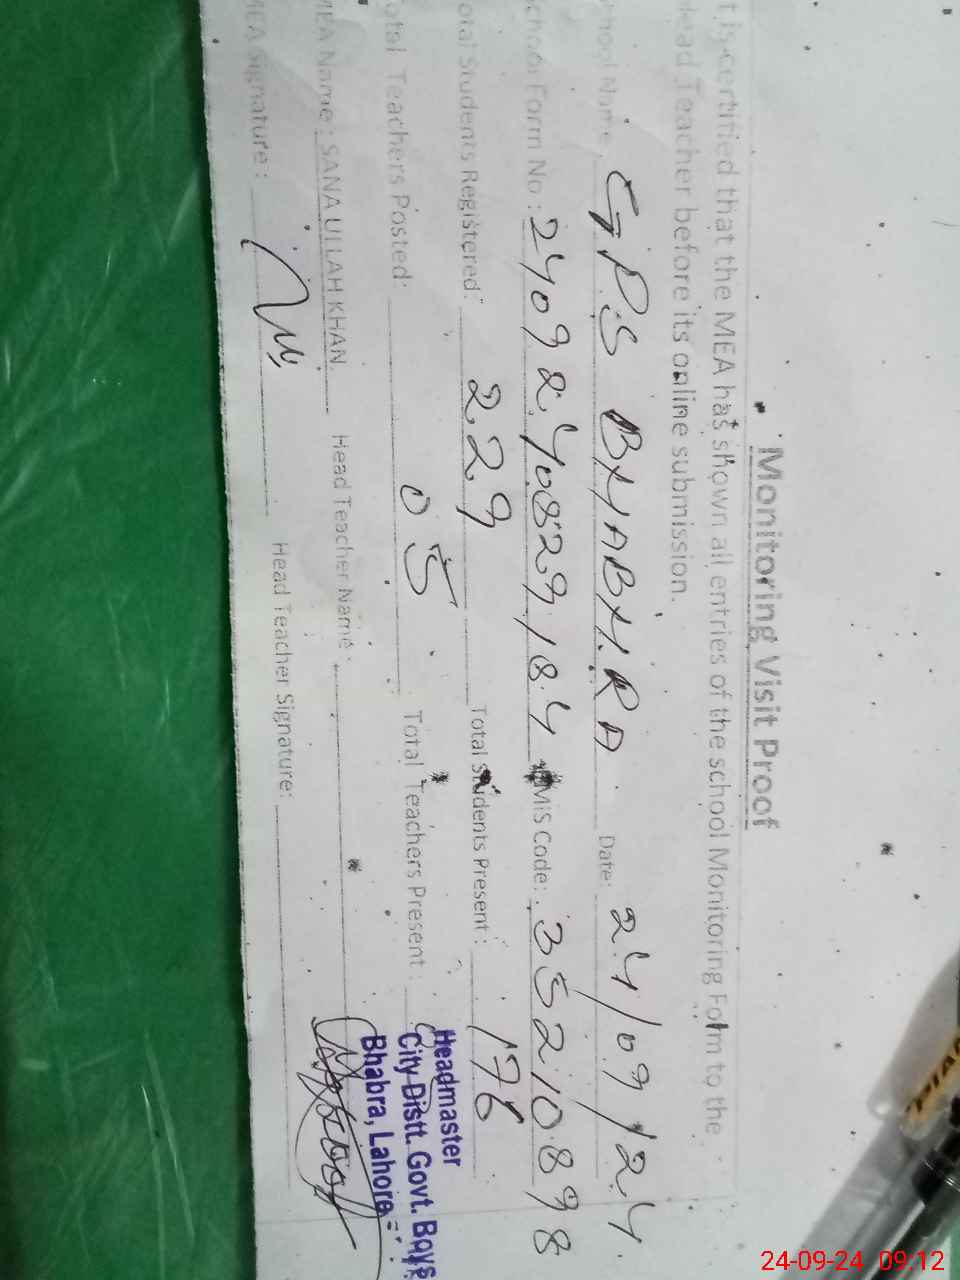 Monitoring Visit Proof
t is certified that the MEA has shown all entries of the school Monitoring Form to the
Head Teacher before its online submission.
chool Name GPS BHABHRA Date: 24/09/24
chool Form No: 2409240829184 MIS Code: 35210898
otal Students Registered: 229 Total Students Present: 176
otal Teachers Posted: 05 Total Teachers Present:
MEA Name: SANA ULLAH KHAN. Head Teacher Name:
MEA Signature: Head Teacher Signature:
Headmaster
City Distt. Govt. Boys
Bhabra, Lahore
24-09-24 09:12